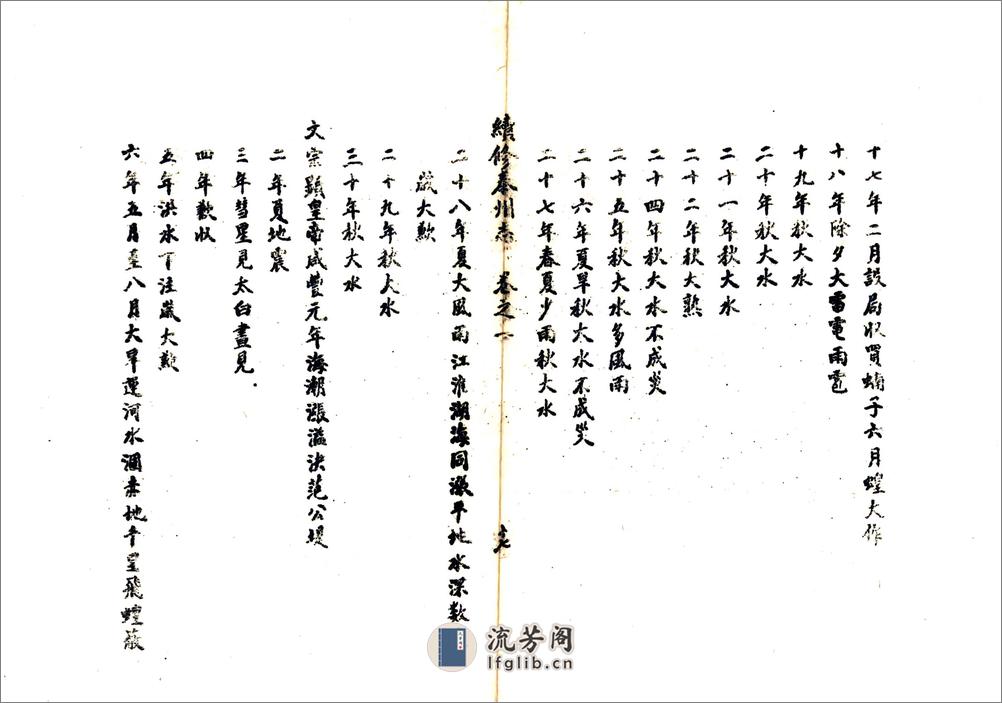 十七年二月設局收買蝻子六月蝗大作
十八年除夕大雷電雨雹
十九年秋大水
二十年秋大水
二十一年秋大水
二十二年秋大熟
二十四年秋大水不成災
二十五年秋大水多風雨
二十六年夏旱秋大水不成災
二十七年春夏少雨秋大水
續修泰州志 卷之一 十七
二十八年夏大風雨江淮湖海同漲平地水深数
歲大歉
二十九年秋大水
三十年秋大水
文宗顯皇帝咸豐元年海潮漲溢決范公堤
二年夏地震
三年彗星見太白晝見.
四年歉收
五年洪水下注歲大歉
六年五月至八月大旱運河水涸赤地千里飛蝗蔽
流芳阁
lfglib.cn